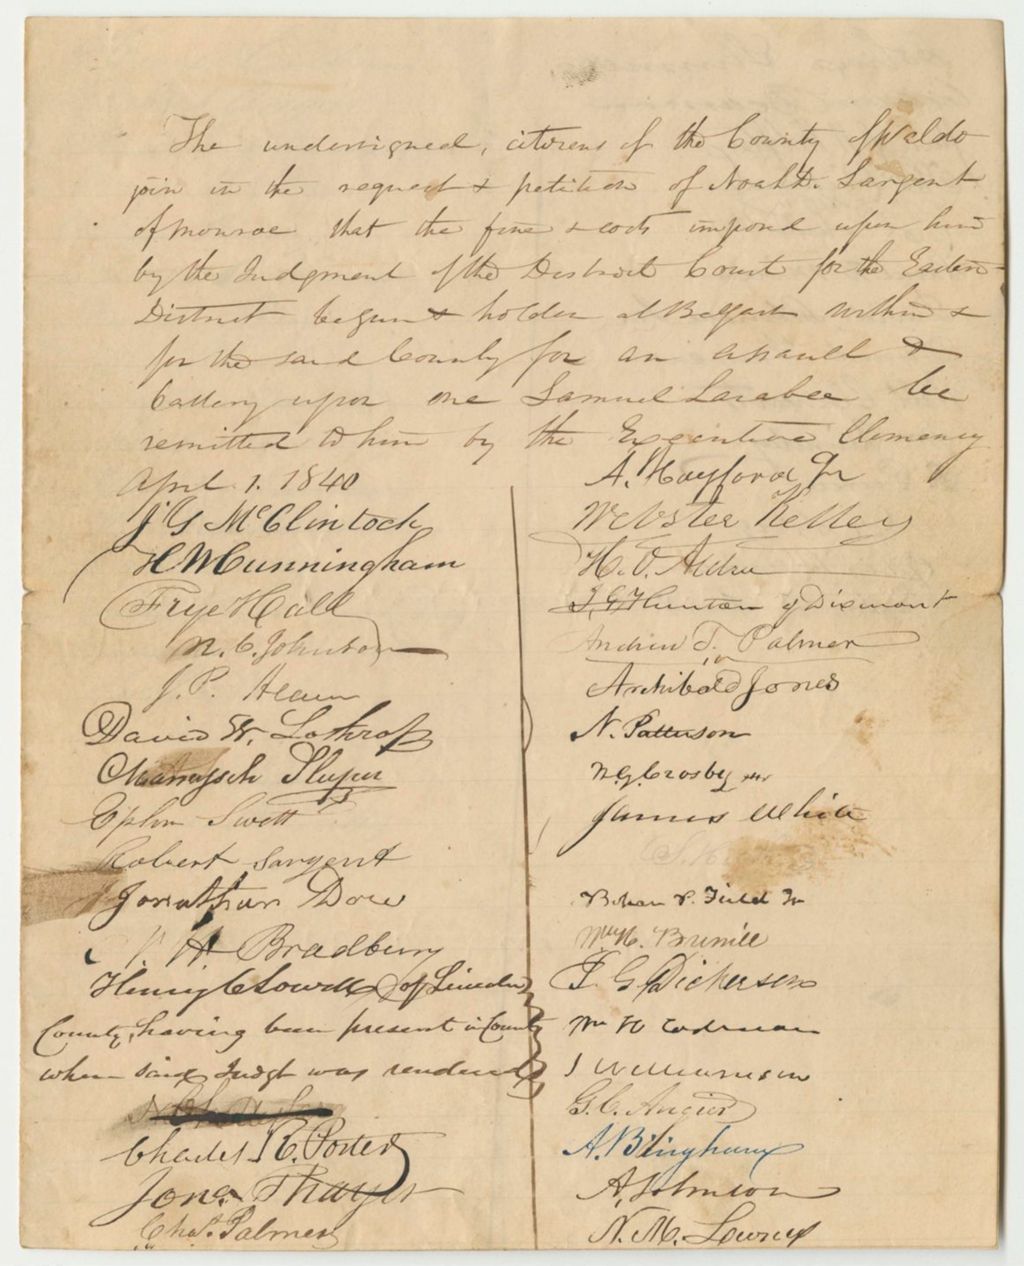 The undersigned, citizens of the County of Waldo
join in the request & petition of Noah D. Sargent
of Monroe that the fine & costs imposed upon him
by the Judgment of the District Court for the Eastern
District begun & holden at Belfast within &
for the said County for an assault &
battery upon one Samuel Larabee be
remitted to him by the Executive Clemency
April 1. 1840
J G McClintock
H W Cunningham
Frye Hall
N. C. Johnson
J. P.
David W. Lothrop
Manasseh Sleeper
Ephm Swett
Robert Sargent
Jonathan Dow
Bradbury
Henry C Lowell of Lincoln
County, having been present in Court
when said Judgt was rendered
Charles R. Porter
Jona. Thayer
Chas. Palmer
A. Hayford Jr
Webster Kelley
H. O.
J. G. Hunton of Dixmont
Andrew T. Palmer
Archibald Jones
N. Patterson
N. G. Crosby
James White
Bohan P. Field Jr
Wm H.
J. G. Dickerson
Wm H Codman
J Williamson
G. C. Angier
A. Bingham
A. Johnson
N. M. Lowney